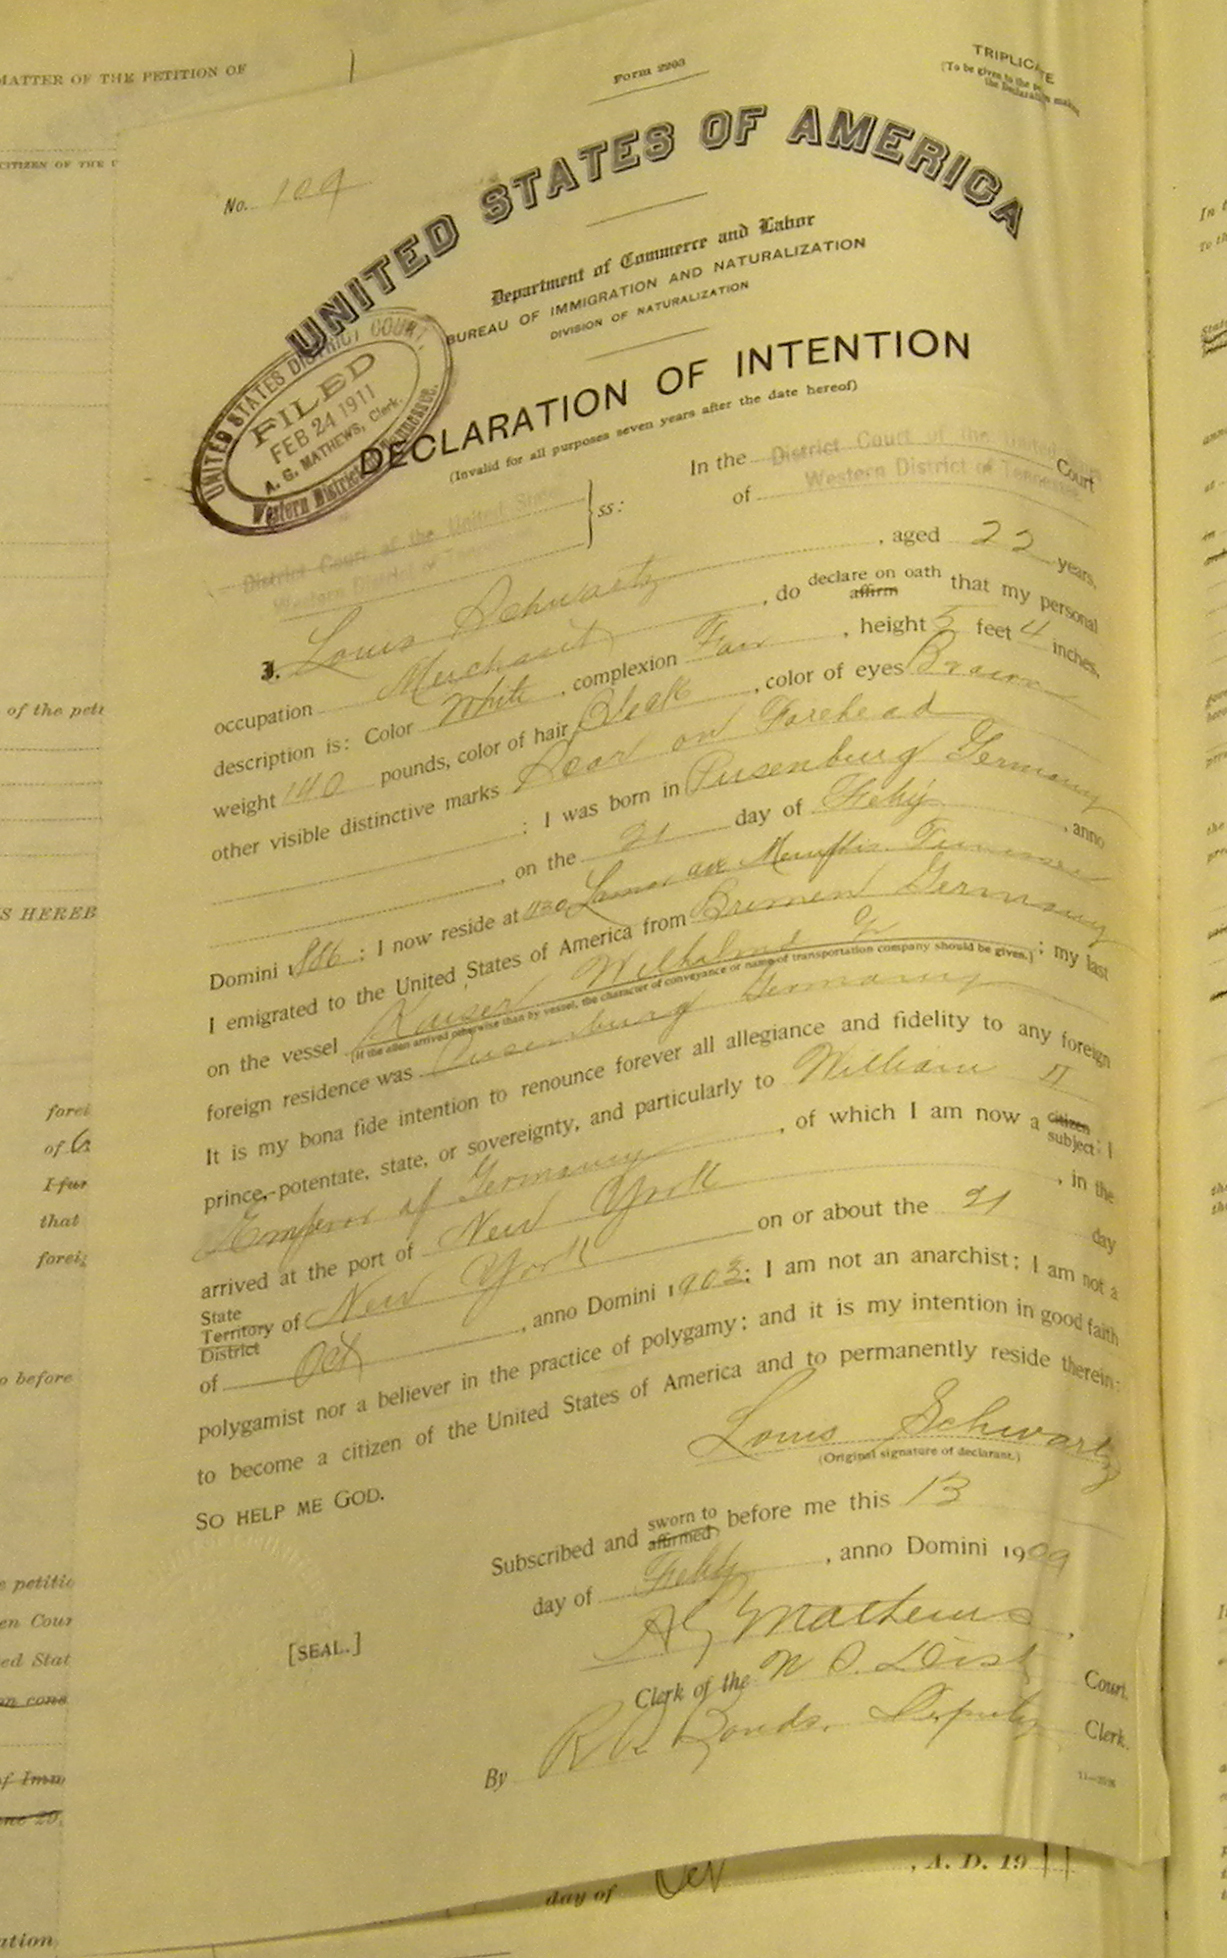 MATTER OF THE PETITION OF
Form 2203
TRIPLICATE
[To be given to the
the Declaration
CITIZEN OF THE U
No. 109
UNITED STATES OF AMERICA
Department of Commerce and Labor
BUREAU OF IMMIGRATION AND NATURALIZATION
DIVISION OF NATURALIZATION
UNITED STATES DISTRICT COURT
FILED
FEB 24 1911
A. G. MATHEWS, Clerk.
Western District of Tennessee.
DECLARATION OF INTENTION
(Invalid for all purposes seven years after the date hereof)
In the District Court of the United Court
of Western District of Tennessee
District Court of the United States
Western District of Tenn
ss:
I, Louis Schwartz, aged 22 years,
occupation Merchant, do declare on oath affirm that my personal
description is: Color White, complexion Fair, height 5 feet 4 inches,
weight 140 pounds, color of hair Black, color of eyes Brown
other visible distinctive marks Scar on Forehead
; I was born in Pusenburg Germany
, on the 21 day of Feby, anno
Domini 1886; I now reside at 1130 ave Memphis Tennessee
I emigrated to the United States of America from Bremen Germany
on the vessel Kaiser Wilhelm 2; my last
(If the alien arrived otherwise than by vessel, the character of conveyance or name of transportation company should be given.)
foreign residence was Pusenburg Germany
It is my bona fide intention to renounce forever all allegiance and fidelity to any foreign
prince, potentate, state, or sovereignty, and particularly to William II
Emperor of Germany, of which I am now a citizen subject; I
arrived at the port of New York, in the
State Territory District of New York on or about the 21 day
of Oct, anno Domini 1903; I am not an anarchist; I am not a
polygamist nor a believer in the practice of polygamy; and it is my intention in good faith
to become a citizen of the United States of America and to permanently reside therein:
SO HELP ME GOD.
Louis Schwartz
(Original signature of declarant.)
Subscribed and sworn to affirmed before me this 13
day of Feby, anno Domini 1909
[SEAL.]
A G Mathews,
Clerk of the U S. Dist Court.
By Bonds, Deputy Clerk.
day of Oct, A. D. 1911
of the peti
S HEREB
forei
of
I fur
that
foreig
o before
e petitio
en Cour
ed Stat
on cons
of Imm
ation,